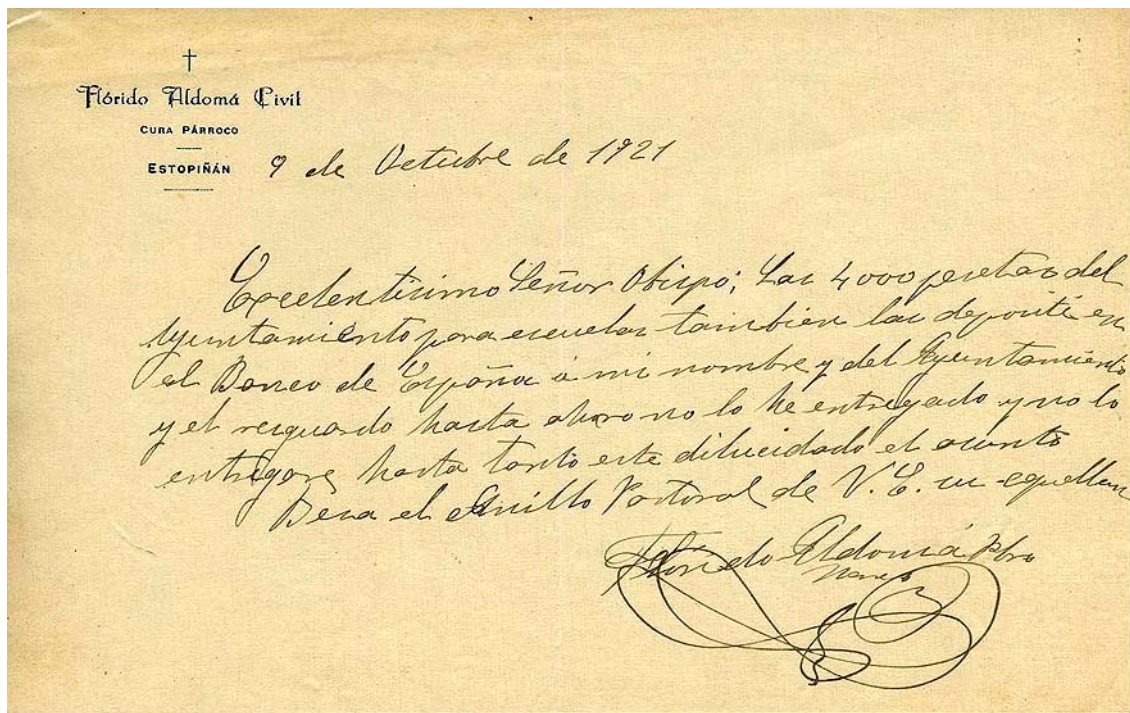 †
Flórido Aldomá Civil
CURA PÁRROCO
ESTOPIÑÁN
9 de Octubre de 1921
Excelentisimo Señor Obispo; Las 4000 pesetas del
Ayuntamiento para escuelas tambien las deposité en
el Banco de España á mi nombre y del Ayuntamiento
y el resguardo hasta ahora no lo he entregado y no lo
entregare hasta tanto este dilucidado el asunto
Besa el Anillo Pastoral de V. E. su capellan
Florido Aldomá Pbro